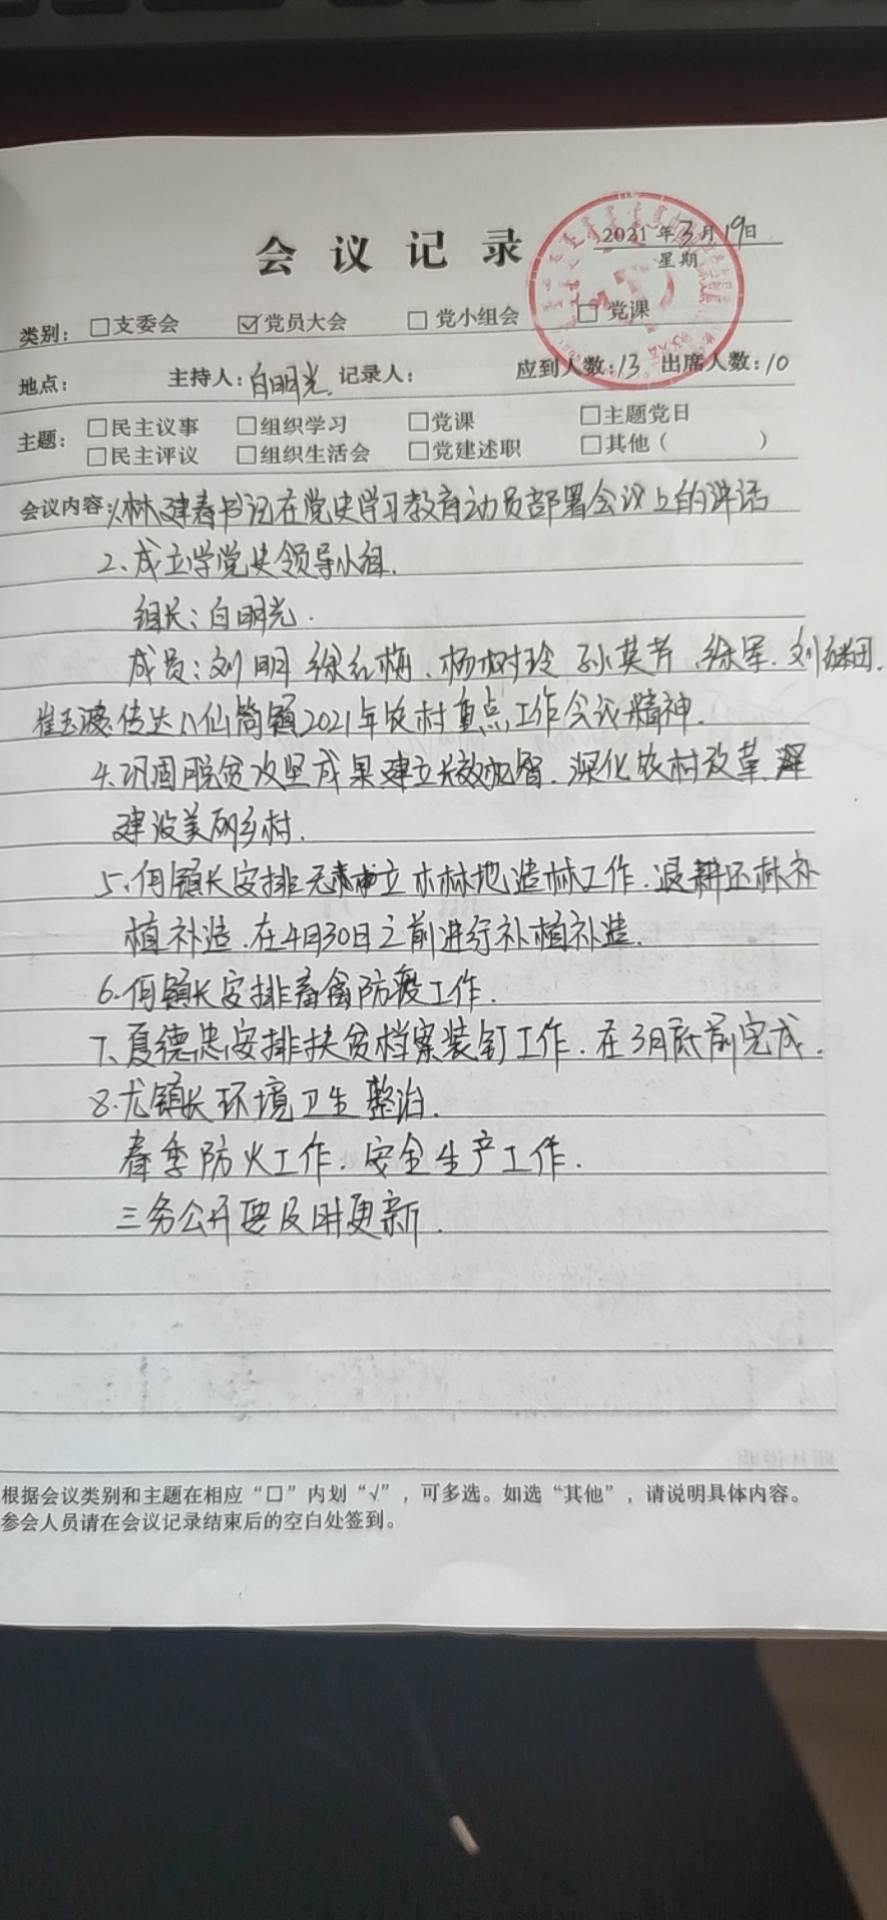 会议记录
2021年3月19日
星期
类别：□支委会 ☑党员大会 □党小组会 □党课
地点： 主持人：白明光 记录人： 应到人数：13 出席人数：10
主题：□民主议事 □组织学习 □党课 □主题党日
□民主评议 □组织生活会 □党建述职 □其他（ ）
会议内容：1.林建春书记在党史学习教育动员部署会议上的讲话
2.成立学党史领导小组.
组长：白明光.
成员：刘明 徐红梅、杨树玲 孙英芹、徐军.刘继田.
崔玉波传达八仙筒镇2021年农村重点工作会议精神.
4.巩固脱贫攻坚成果建立长效机智.深化农村改革
建设美丽乡村.
5.何镇长安排无木林地造林工作.退耕还林补
植补造.在4月30日之前进行补植补造.
6.何镇长安排畜禽防疫工作.
7、夏德忠安排扶贫档案装钉工作.在3月底前完成.
8.尤镇长环境卫生整治.
春季防火工作.安全生产工作.
三务公开要及时更新.
根据会议类别和主题在相应“口”内划“√”，可多选。如选“其他”，请说明具体内容。
参会人员请在会议记录结束后的空白处签到。